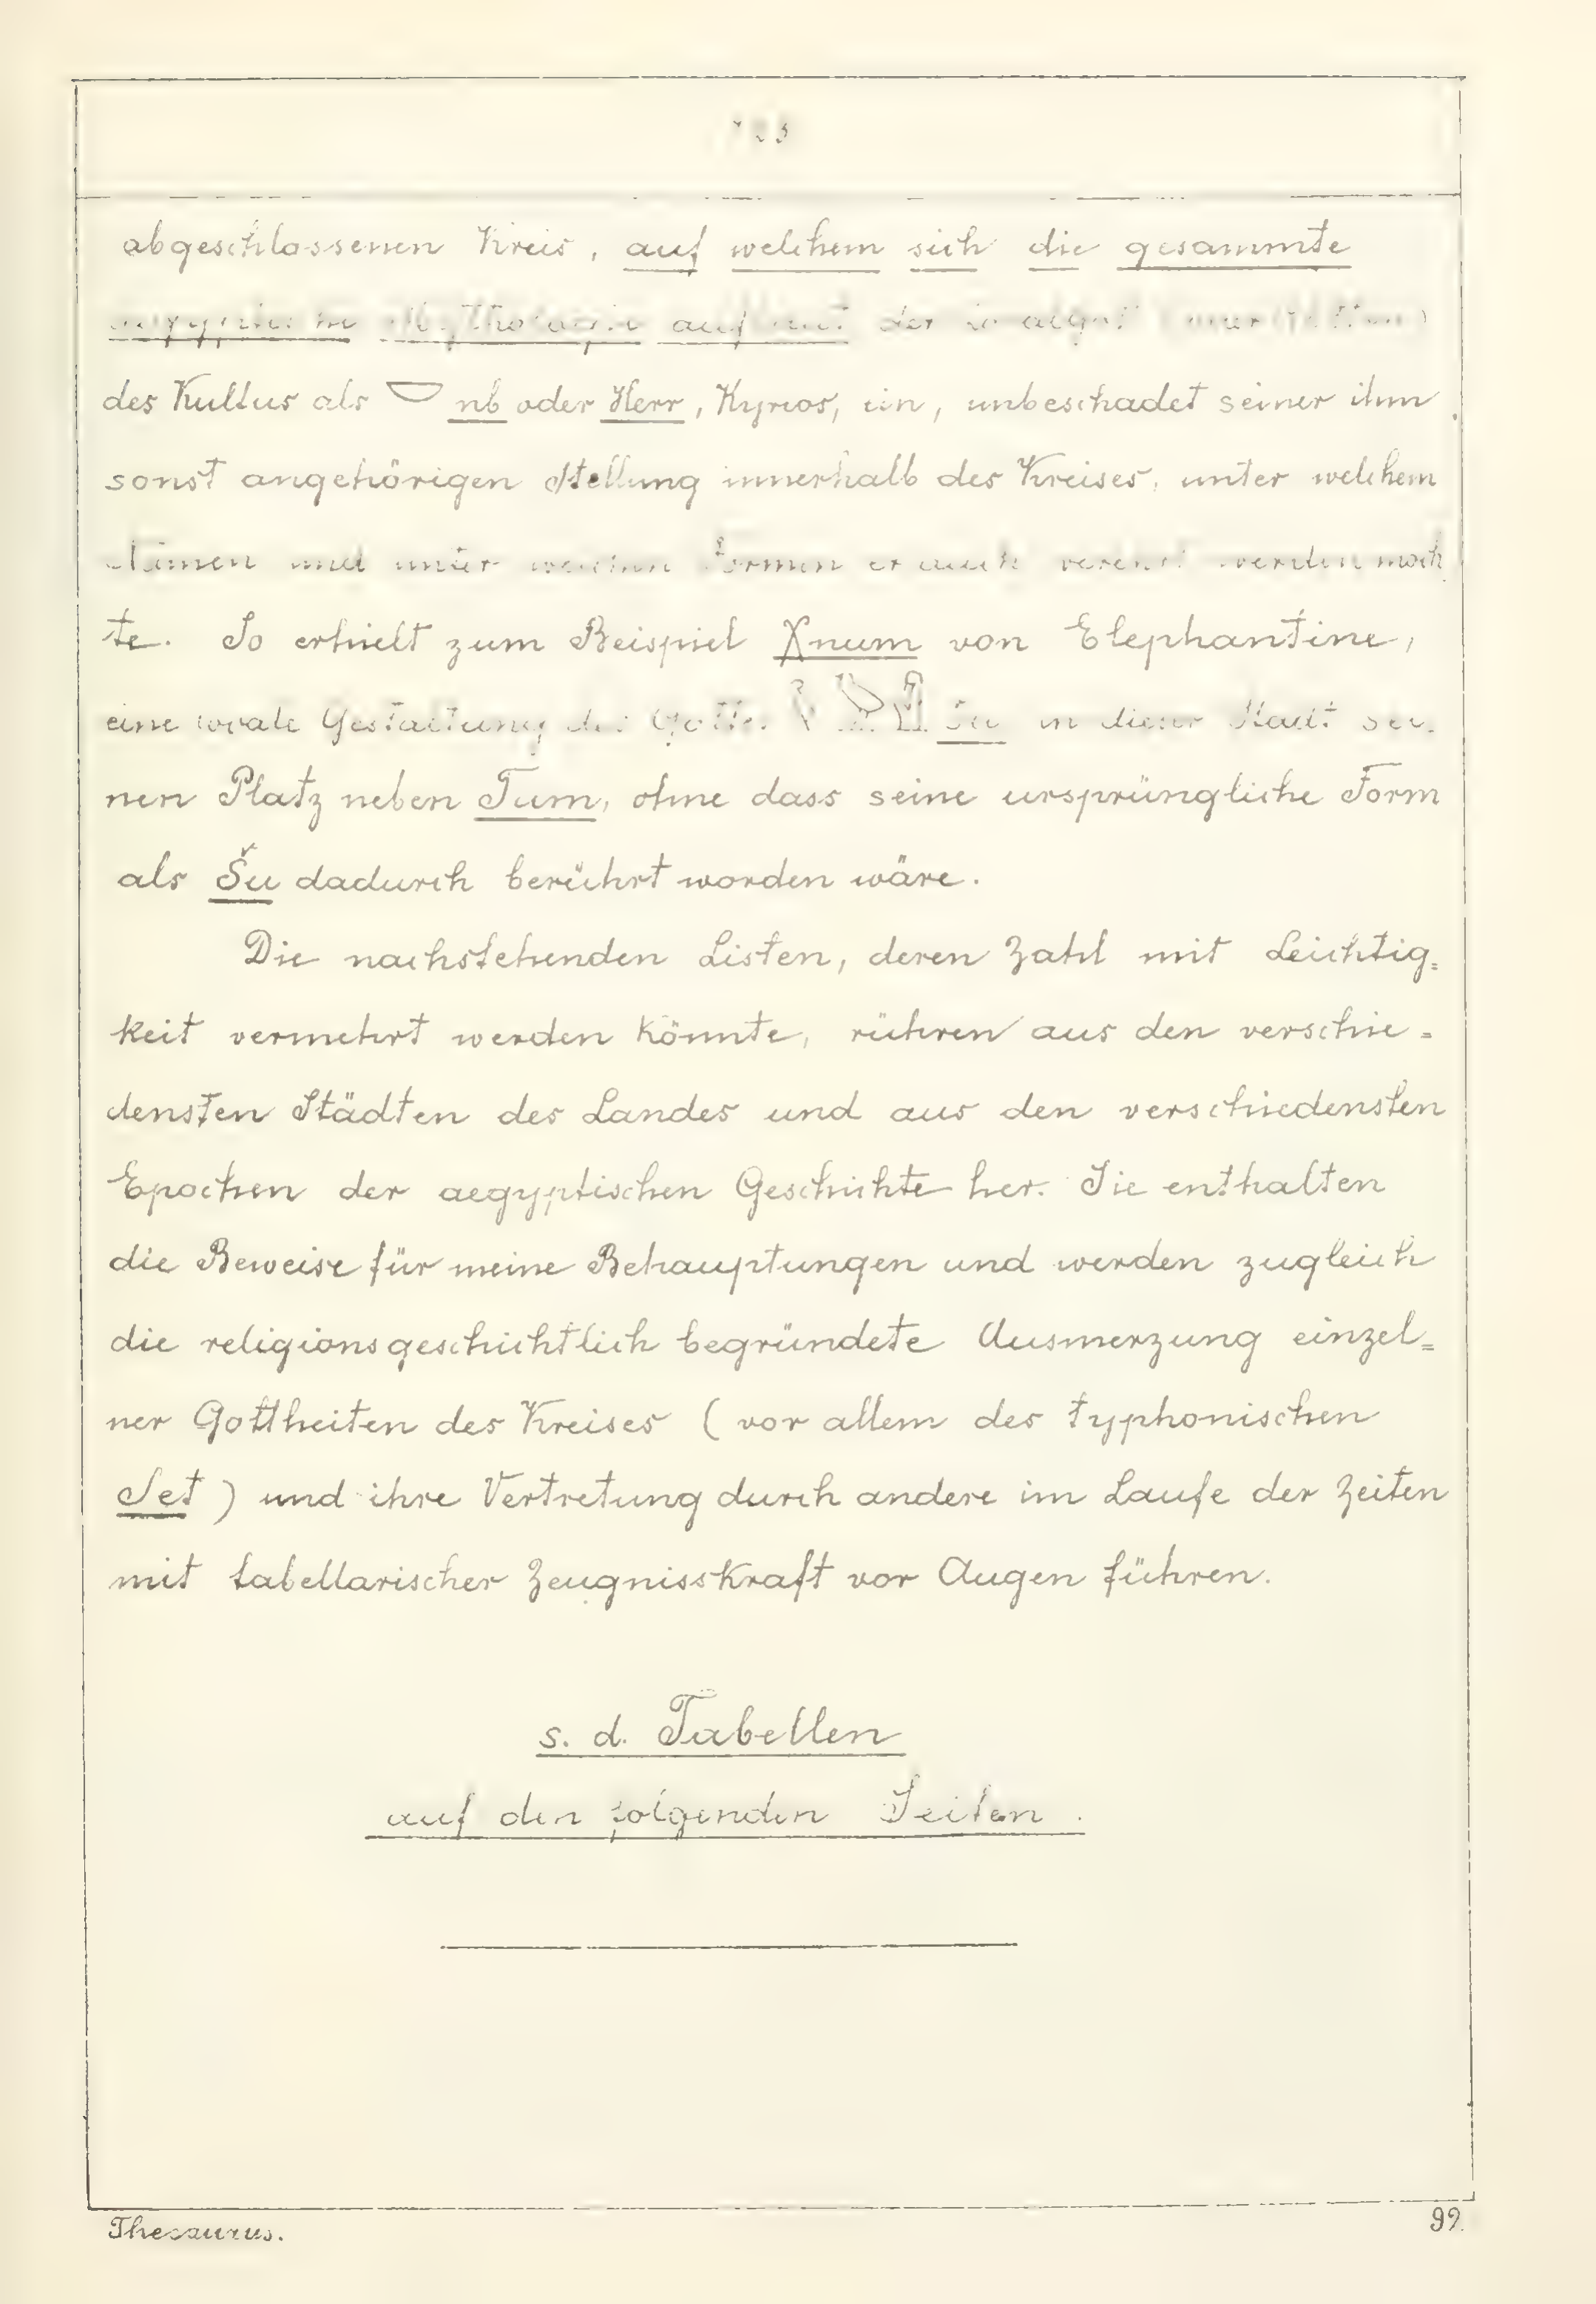 abgeschlossenen Kreis, auf welchem sich die gesammte
Mythologie auf der
des Kultus als nb oder Herr, Kyrios, ein, unbeschadet seiner ihm
sonst angehörigen Stellung innerhalb des Kreises, unter welchem
Namen und unter welchen Formen er auch verehrt werden moch
te. So erhielt zum Beispiel Xnum von Elephantine,
eine lokale Gestaltung des Gottes Šu in dieser Stadt sei-
nen Platz neben Tum, ohne dass seine ursprüngliche Form
als Šu dadurch berührt worden wäre.
Die nachstehenden Listen, deren Zahl mit Leichtig=
keit vermehrt werden könnte, rühren aus den verschie=
densten Städten des Landes und aus den verschiedensten
Epochen der aegyptischen Geschichte her. Sie enthalten
die Beweise für meine Behauptungen und werden zugleich
die religionsgeschichtlich begründete Ausmerzung einzel=
ner Gottheiten des Kreises (vor allem des typhonischen
Set) und ihre Vertretung durch andere im Laufe der Zeiten
mit tabellarischer Zeugnisskraft vor Augen führen.
s. d. Tabellen
auf den folgenden Seiten.
Thesaurus. 92.